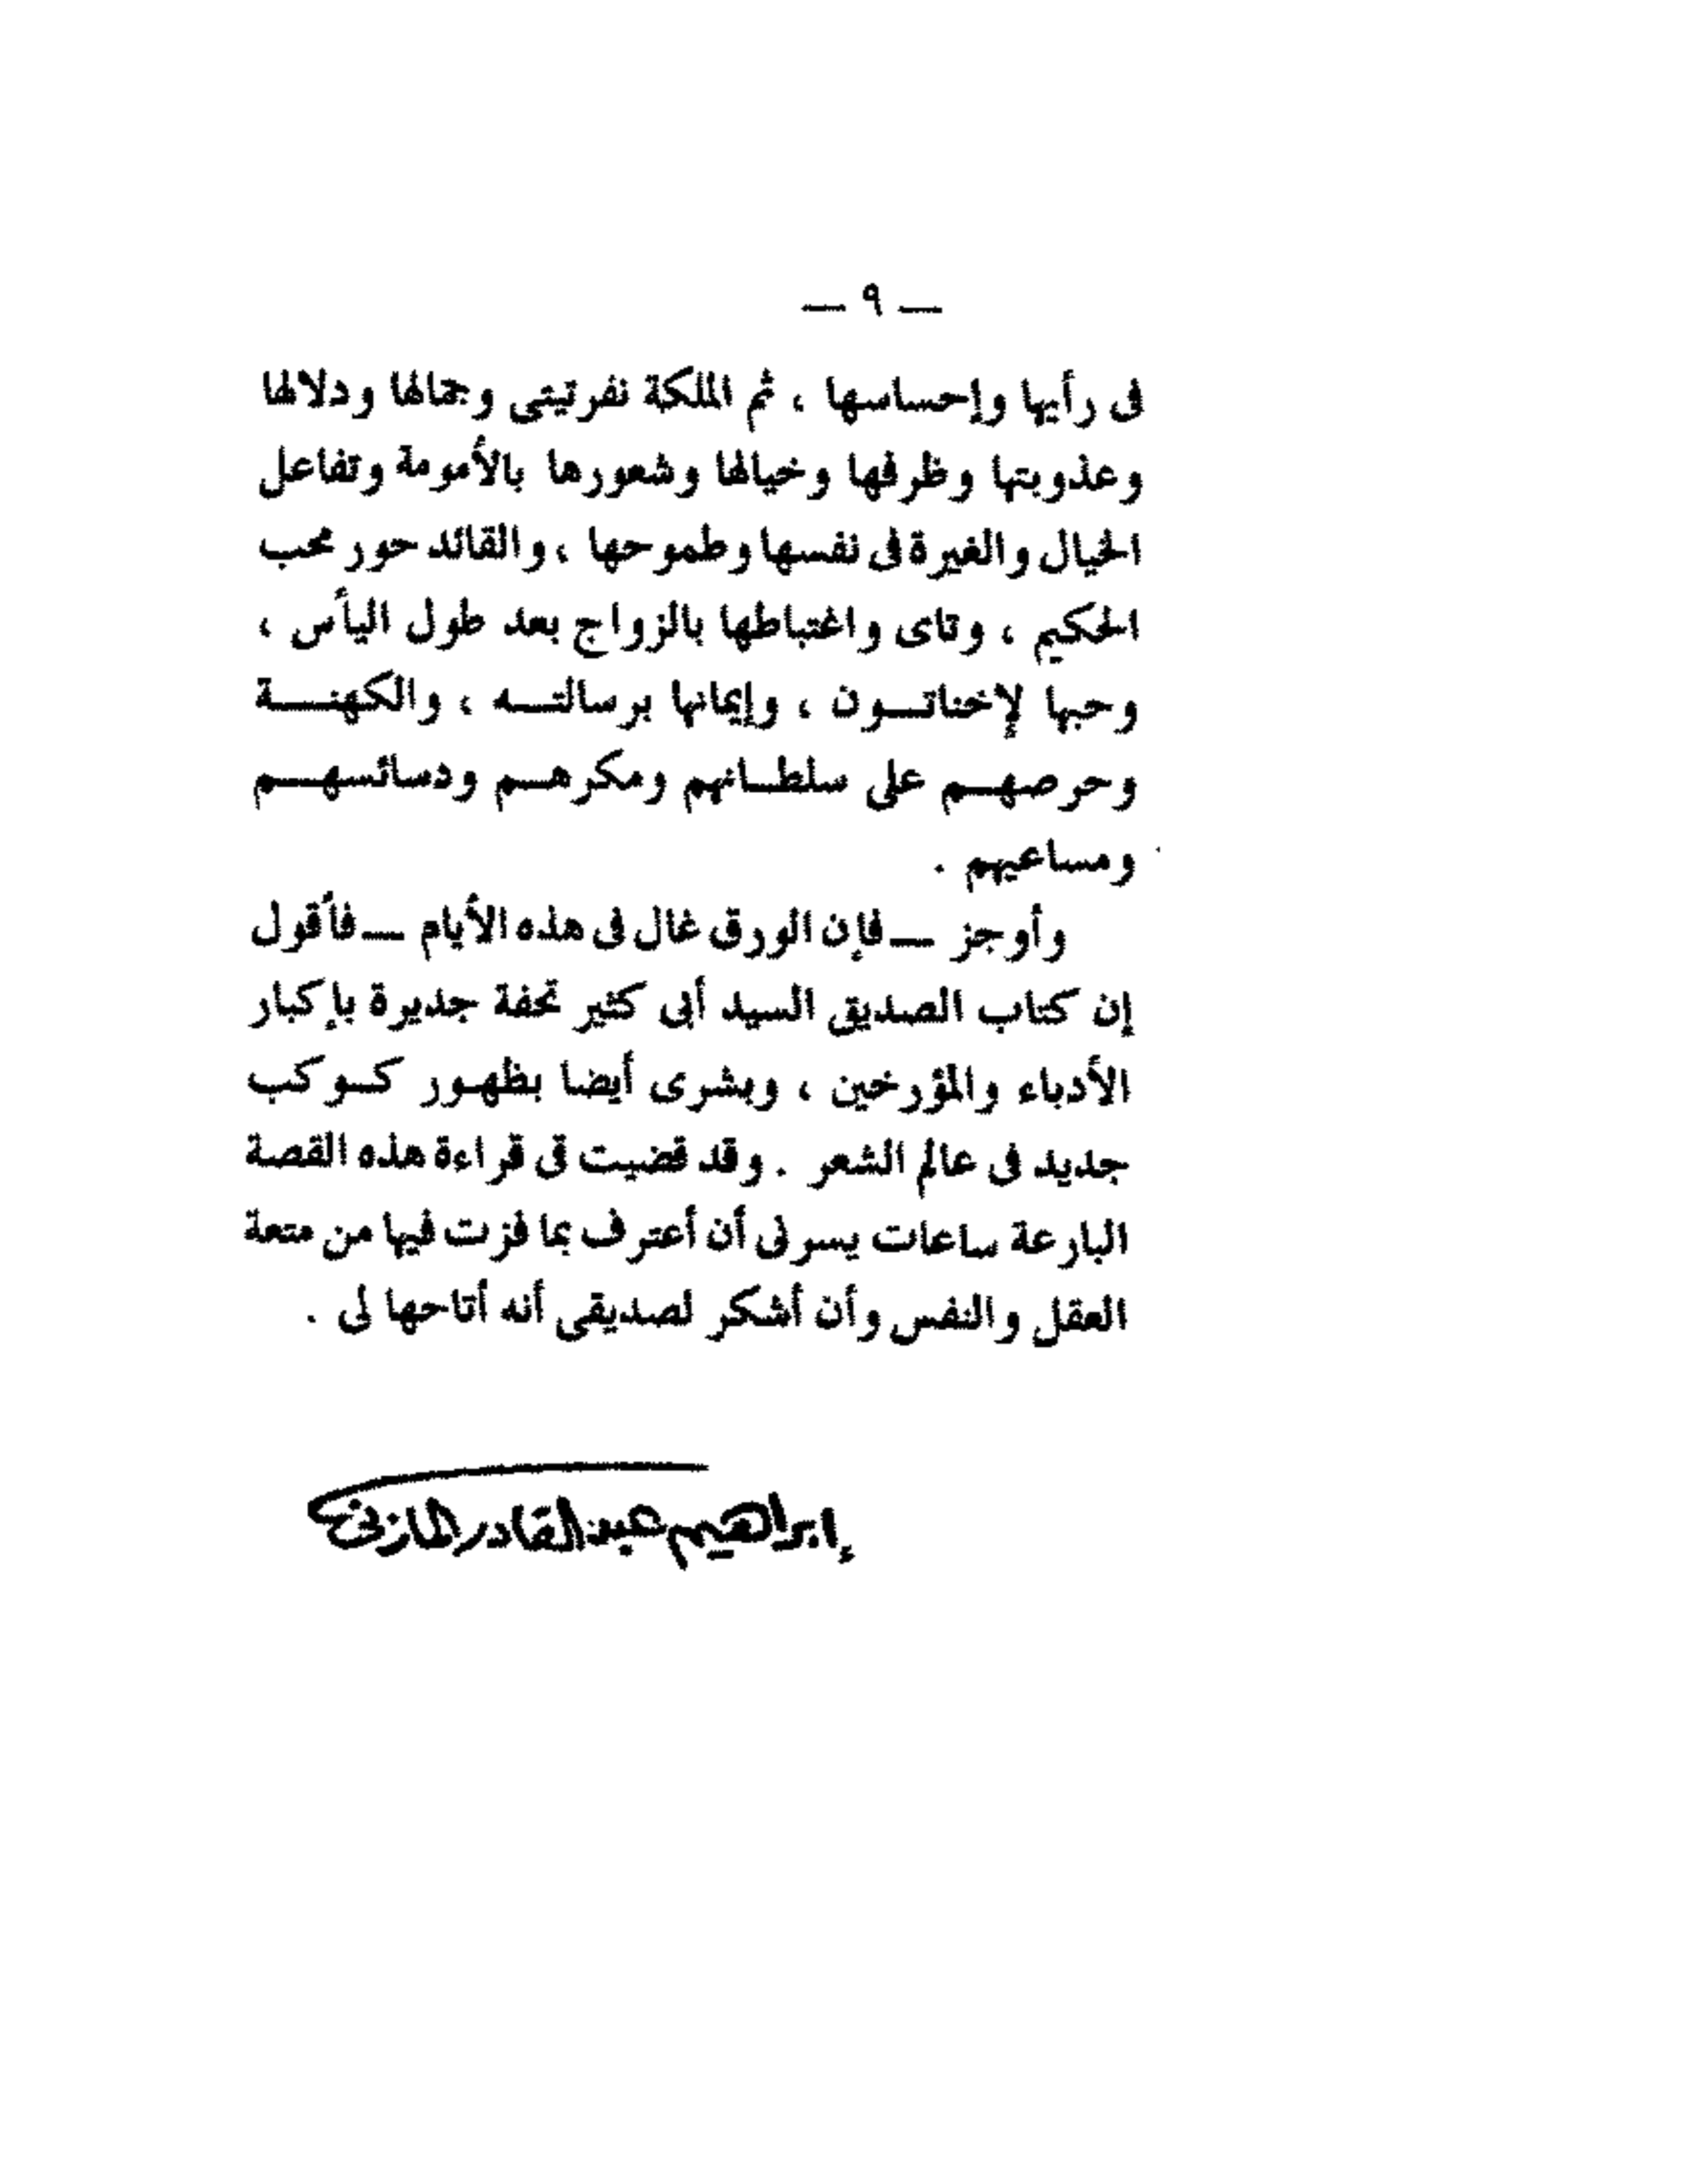 — ٩ —
فى رأيها وإحساسها ، ثم الملكة نفرتيتى وجمالها ودلالها
وعذوبتها وظرفها وخيالها وشعورها بالأمومة وتفاعل
الخيال والغيرة فى نفسها وطموحها ، والقائد حور محب
الحكيم ، وتاى واغتباطها بالزواج بعد طول اليأس ،
وحبها لإخناتــون ، وإيمانها برسالتــه ، والكهنــة
وحرصهــم على سلطــانهم ومكرهــم ودسائسهــم
ومساعيهم .
وأوجز — فإن الورق غال فى هذه الأيام — فأقول
إن كتاب الصديق السيد أبى كثير تحفة جديرة بإكبار
الأدباء والمؤرخين ، وبشرى أيضا بظهـور كـوكب
جديد فى عالم الشعر . وقد قضيت فى قراءة هذه القصة
البارعة ساعات يسرنى أن أعترف بما فزت فيها من متعة
العقل والنفس وأن أشكر لصديقى أنه أتاحها لى .
إبراهيم عبد القادر المازنى